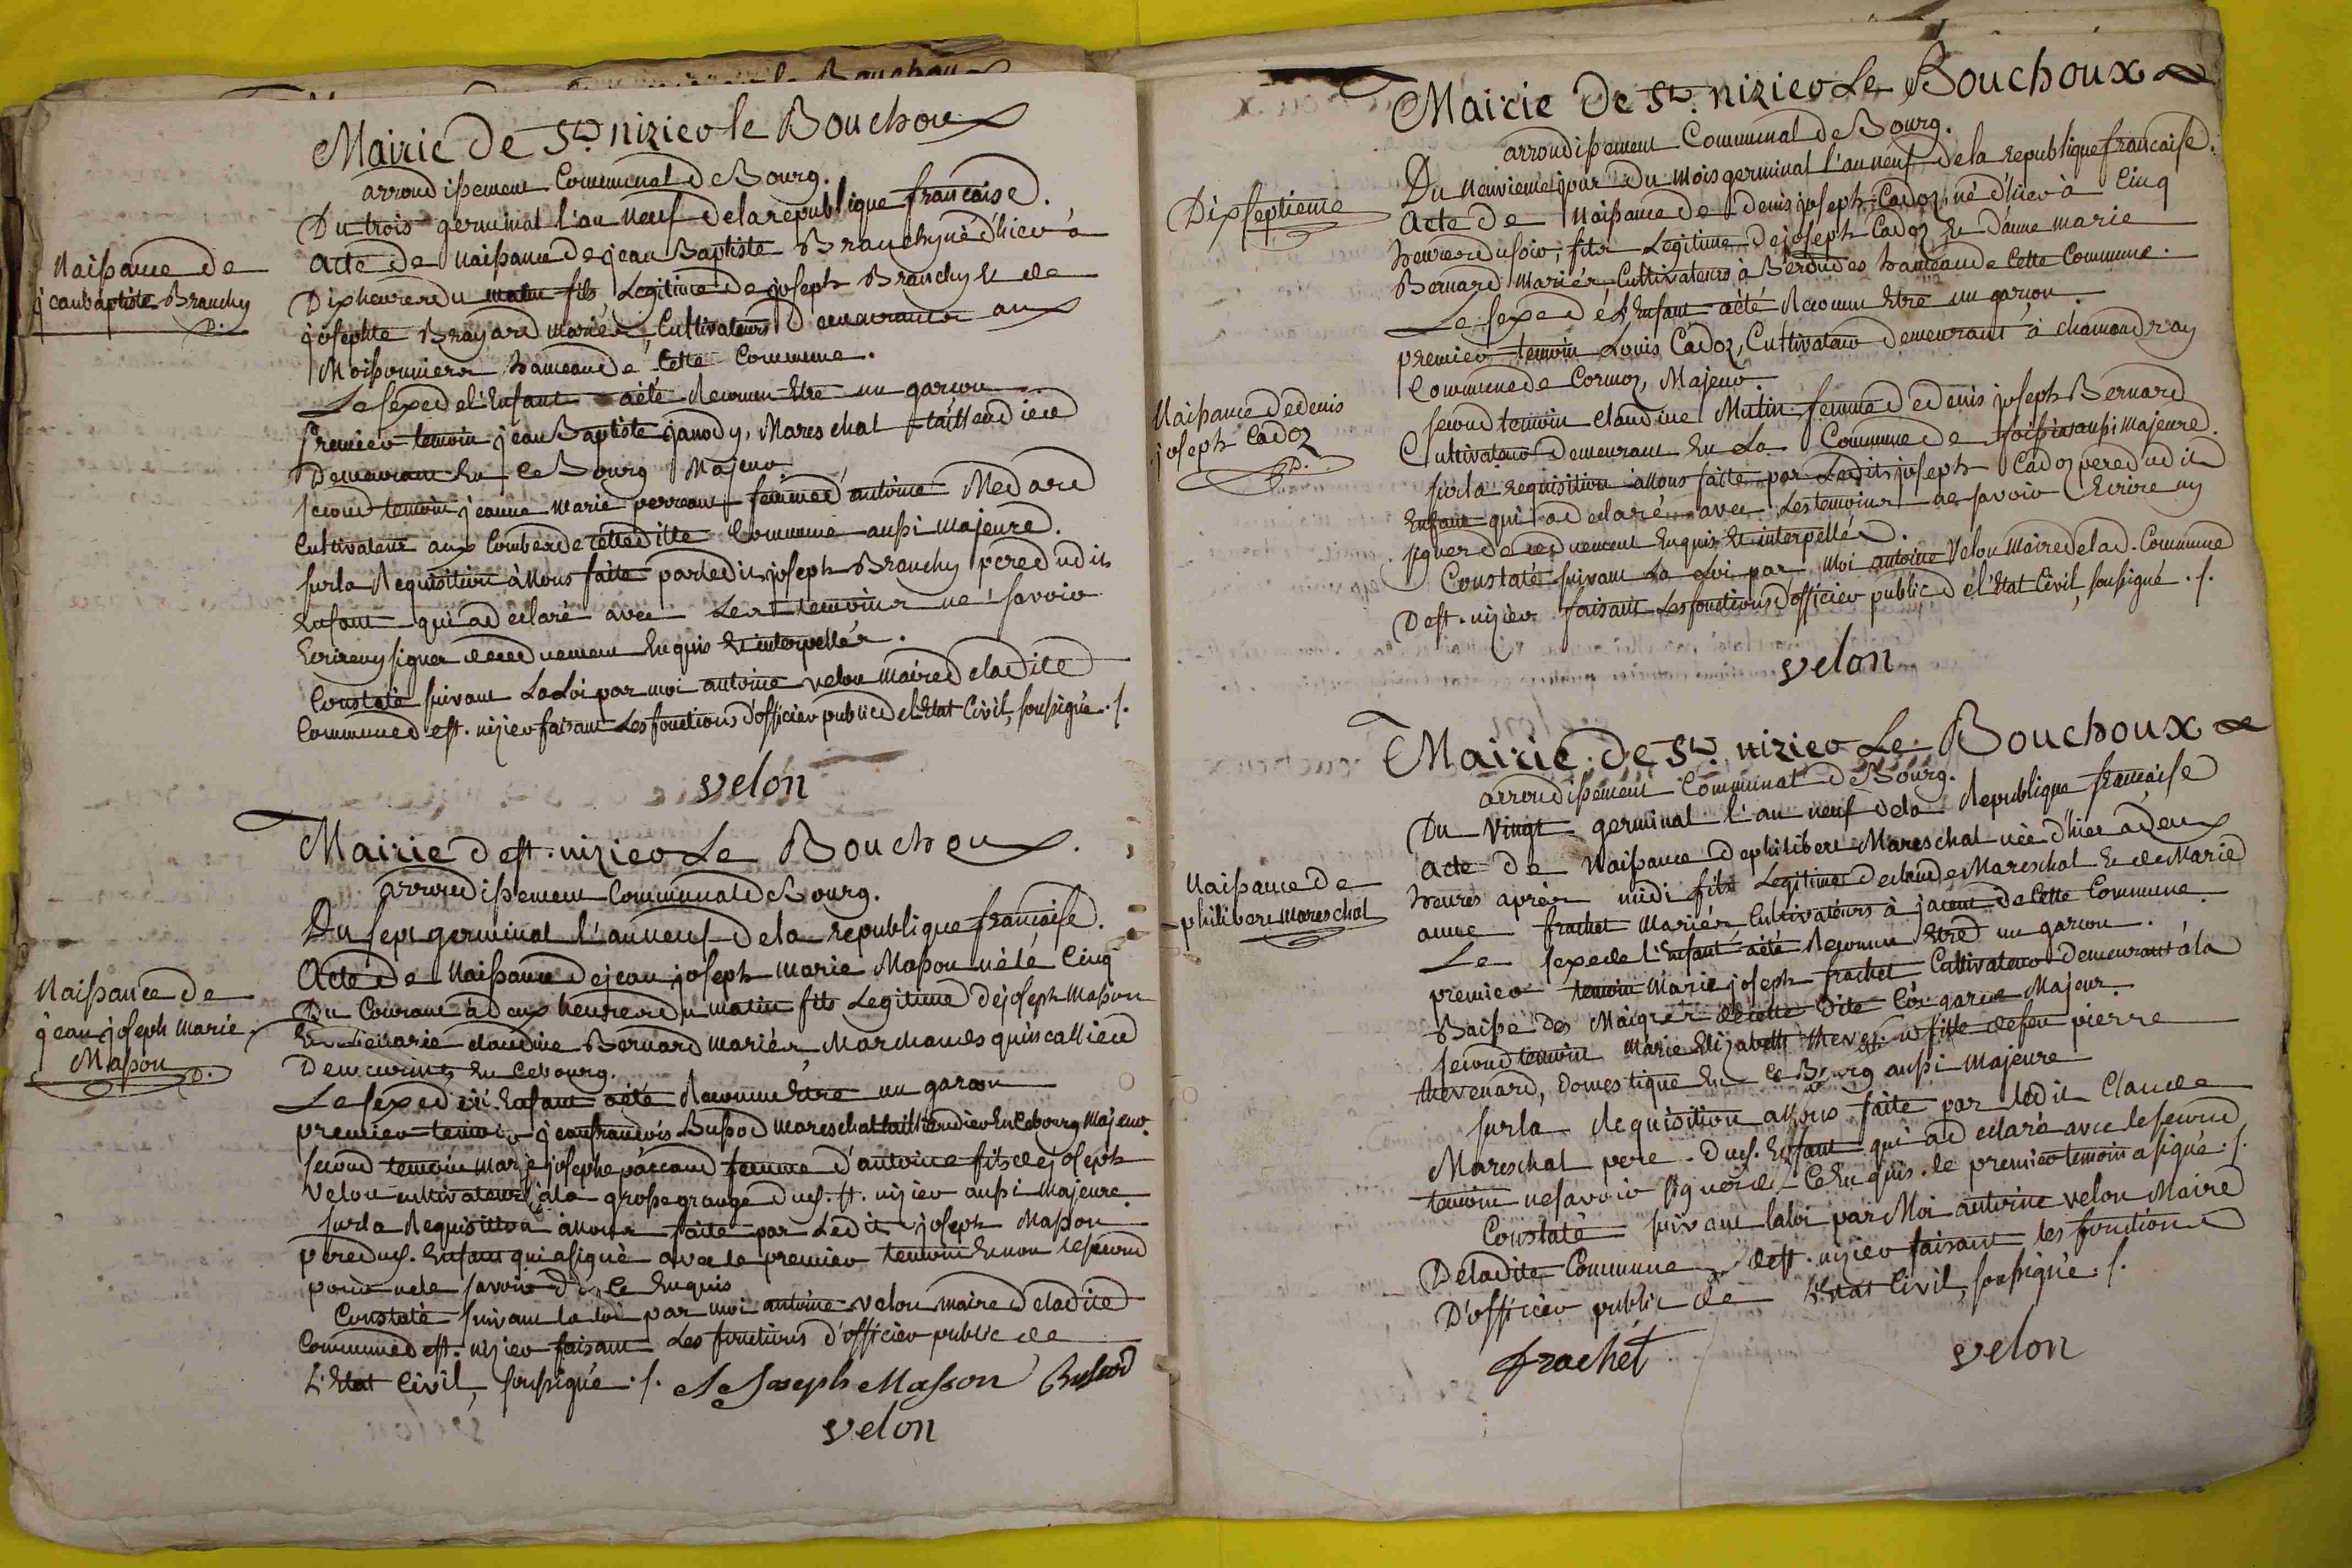 Mairie de St. nizier le Bouchoux
arrondissement Communal de Bourg.
Du trois germinal l'an neuf de la republique francaise.
Naissance de
jean baptiste Branchy
acte de naissance de jean Baptiste Branchy né d'hier à
Dix heures du matin fils Legitime de joseph Branchy et de
josephte Brayard mariés, Cultivateurs demeurants aux
Moissonniers hameau de cette Commune.
Le sexe de l'Enfant a été Reconnu Etre un garcon
Premier temoin jean Baptiste janody, Mareschal taillandier
Demeurant En ce Bourg Majeur
second temoin jeanne marie perreaut femme d'antoine Medard
Cultivateur aux Combes de cette ditte Commune aussi majeure.
sur la Requisition à nous faite par ledit joseph Branchy pere dudit
Enfant qui a declaré avec Les temoins ne savoir
Ecrire ny signer de ce duement Enquis et interpellés.
Constaté suivant La Loi par moi antoine velon maire de ladite
Commune de st. nizier faisant Les fonctions d'officier public de l'Etat Civil, soussigné ./.
velon
Mairie de st. nizier Le Bouchoux.
arrondissement Communal de Bourg.
Du sept germinal l'an neuf de la republique francaise.
Naissance de
jean joseph marie
Masson
Acte de Naissance de jean joseph marie Masson né lé Cinq
Du Courant à deux heures du matin fils Legitime de joseph Masson
Et de marie claudine Bernard mariés Marchands quinscalliers
Demeurants En ce bourg.
Le sexe de l'Enfant a été Reconnu Etre un garcon
premier temoin jean francois Bussod mareschal taillandier En ce bourg Majeur.
second temoin marie josephe paccaud femme d'antoine fils de joseph
Velon cultivateurs à la grosse grange dud. st. nizier aussi Majeure.
sur la Requisition à nous faite par Ledit joseph Masson
pere dud. Enfant qui a signé avec le premier temoin Et non le second
pour ne le savoir De ce Enquis
Constaté suivant la loi par moi antoine velon maire de ladite
Commune de st. nizier faisant Les fonctions d'officier public de
L'Etat Civil, soussigné ./. J Joseph Masson Bussod
velon
Mairie De St. nizier Le Bouchoux
arrondissement Communal de Bourg.
Dix septieme
Du neuvieme jour du mois germinal l'an neuf de la republique francaise.
Acte de Naissance de denis joseph Cadoz, né d'hier à Cinq
heures du soir, fils Legitime de joseph Cadoz Et d'anne marie
Bernard Mariés Cultivateurs à Beroudes hameau de Cette Commune.
Le sexe de l'Enfant a été Reconnu Etre un garcon.
premier temoin Louis Cadoz, Cultivateur Demeurant à chamandray
Commune de Cormoz, Majeur.
Naissance de denis
joseph Cadoz
second temoin claudine Mutin femme de denis joseph Bernard
Cultivateur demeurant En La Commune de aussi majeure.
sur la requisition à nous faite par Ledit joseph Cadoz pere dudit
Enfant qui a declaré avec Les temoins ne savoir Ecrire ny
signer de ce duement Enquis Et interpellés.
Constaté suivant La Loi par moi antoine Velon Maire de lad. Commune
De st. nizier faisant Les fonctions d'officier public de l'Etat Civil, soussigné ./.
velon
Mairie de St. nizier Le Bouchoux
arrondissement Communal de Bourg.
Du Vingt germinal l'an neuf de la Republique francaise
Naissance de
philibert mareschal
Acte de Naissance de philibert Mareschal née d'hier à deux
heures après midi fils Legitime de claude Mareschal Et de Marie
anne frachet Mariés Cultivateurs à jacent de Cette Commune.
Le sexe de l'Enfant a été Reconnu Etre un garcon.
premier temoin Marie joseph frachet Cultivateur demeurant à la
Baisse des Maigres de cette Dite Majeur.
second temoin Marie Elizabeth thevenard fille de feu pierre
thevenard, Domestique En ce Bourg aussi Majeure
sur la Requisition a nous faite par ledit Claude
Mareschal pere . dud. Enfant qui a declaré avec le second
temoin ne savoir signer de Ce Enquis. le premier temoin a signé ./.
Constaté suivant la loi par Moi antoine velon Maire
De ladite Commune de st. nizier faisant les fonctions
D'officier public de L'Etat Civil, soussigné ./.
frachet
velon